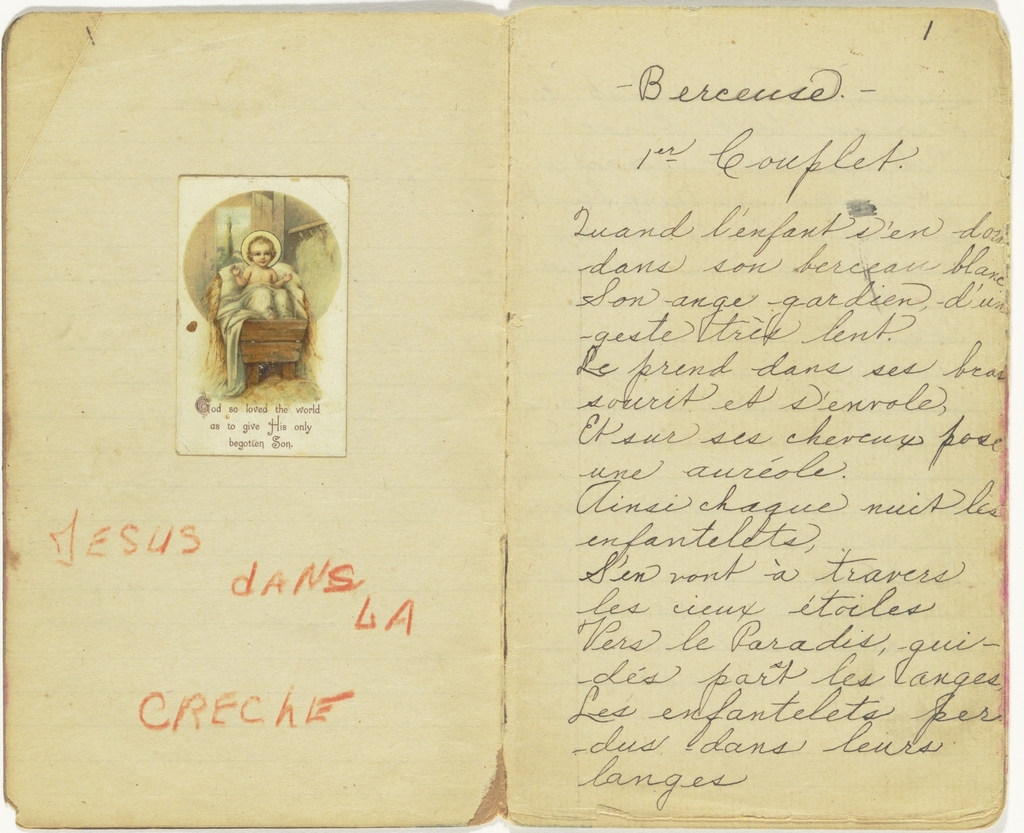 God so loved the world
as to give His only
begotten Son.
JESUS
dANS
LA
CREChE
1
- Berceuse. -
1er Couplet.
Quand l'enfant s'en dor
dans son berceau blanc
Son ange gardien, d'un
geste très lent.
Le prend dans ses bras
sourit et s'envole,
Et sur ses cheveux pose
une auréole.
Ainsi chaque nuit les
enfantelets,
S'en vont à travers
les cieux étoiles
Vers le Paradis, gui-
dés part les anges
Les enfantelets per
dus dans leurs
langes